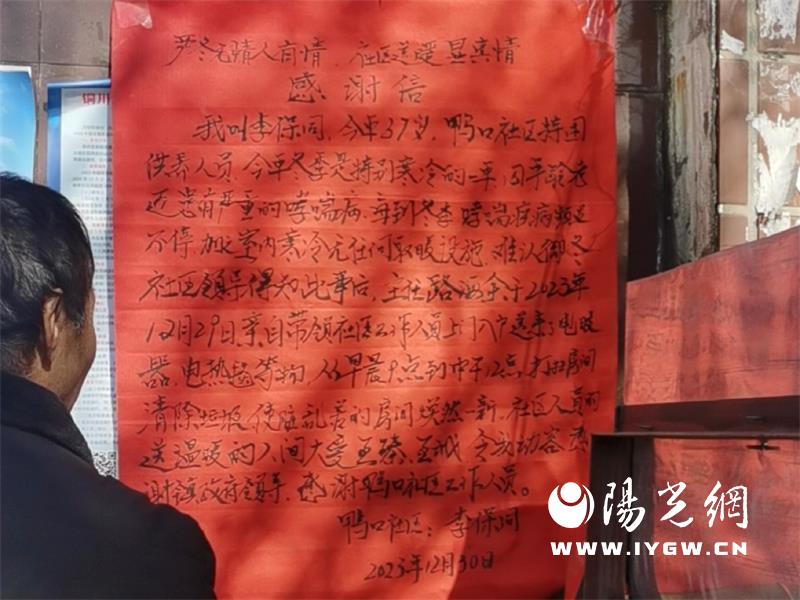 严冬无情人有情，社区送暖显真情
感谢信
我叫李保同，今年37岁，鸭口社区特困
供养人员，今年冬季是特别寒冷的一年，因年龄老
迈患有严重的哮喘病，每到冬季哮喘疾病频
不停，加上室内寒冷无任何取暖设施，难以御冬
社区领导得知此事后，主任路 于2023年
12月29日亲自带领社区工作人员上门入户送来了电暖
器、电热毯等物，从早晨9点到中午12点，打扫房间
清除垃圾，使脏乱差的房间焕然一新，社区人员的
送温暖的人间大爱至臻、至诚，令我动容，感
谢镇政府领导，感谢鸭口社区工作人员。
鸭口社区：李保同
2023年12月30日
铜川
陽光網
WWW.IYGW.CN